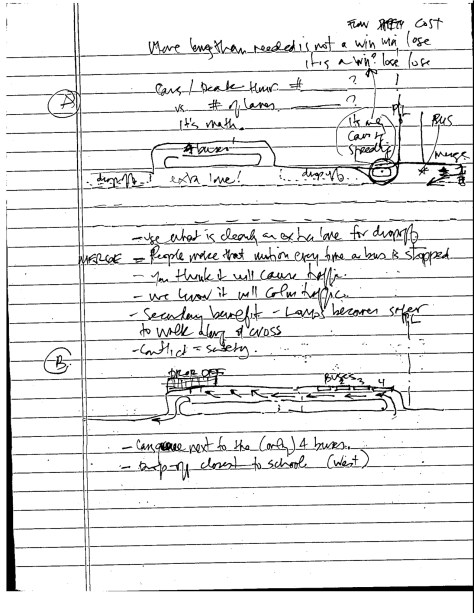 FLOW SAFETY COST
More lengthan needed is not a win win lose
it is a win? lose lose
Cars / Peak Hour # ?
vs # of lanes ?
It's math.
PL
BUS
merge
It's a
Car is
Speeding
A
4 buses!
dropoff extra lane! dropoff
- use what is clearly an extra lane for dropoff
MERGE = People make that motion every time a bus is stopped
- You think it will cause traffic.
- we know it will calm traffic.
- Secondary benefit - becomes safer
to walk along & cross
PL
- Conflict = safety.
B
DROP OFF
BUSES
2 3 4
- Can queue next to the (only) 4 buses.
- Drop-off closest to school (West)